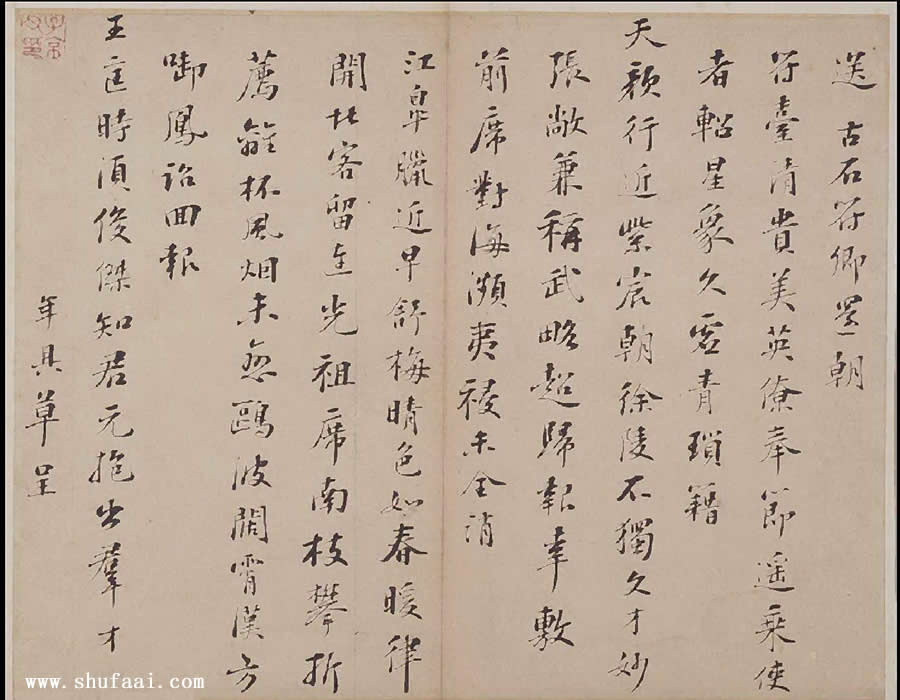 送 古石符卿還朝
符臺清貴美英僚奉節遥乘使
者軺星象久虛青瑣籍
天顏行近紫宸朝徐陵不獨文才妙
張敞兼稱武略超歸報幸敷
前席對海瀕夷祲未全消
江皐臘近早舒梅晴色如春暖律
開北客留連光祖席南枝攀折
薦離杯風烟未鷗波闊霄漢方
啣鳳詔回報
王匡時須俊傑知君元抱出羣才
年具草呈
www.shufaai.com